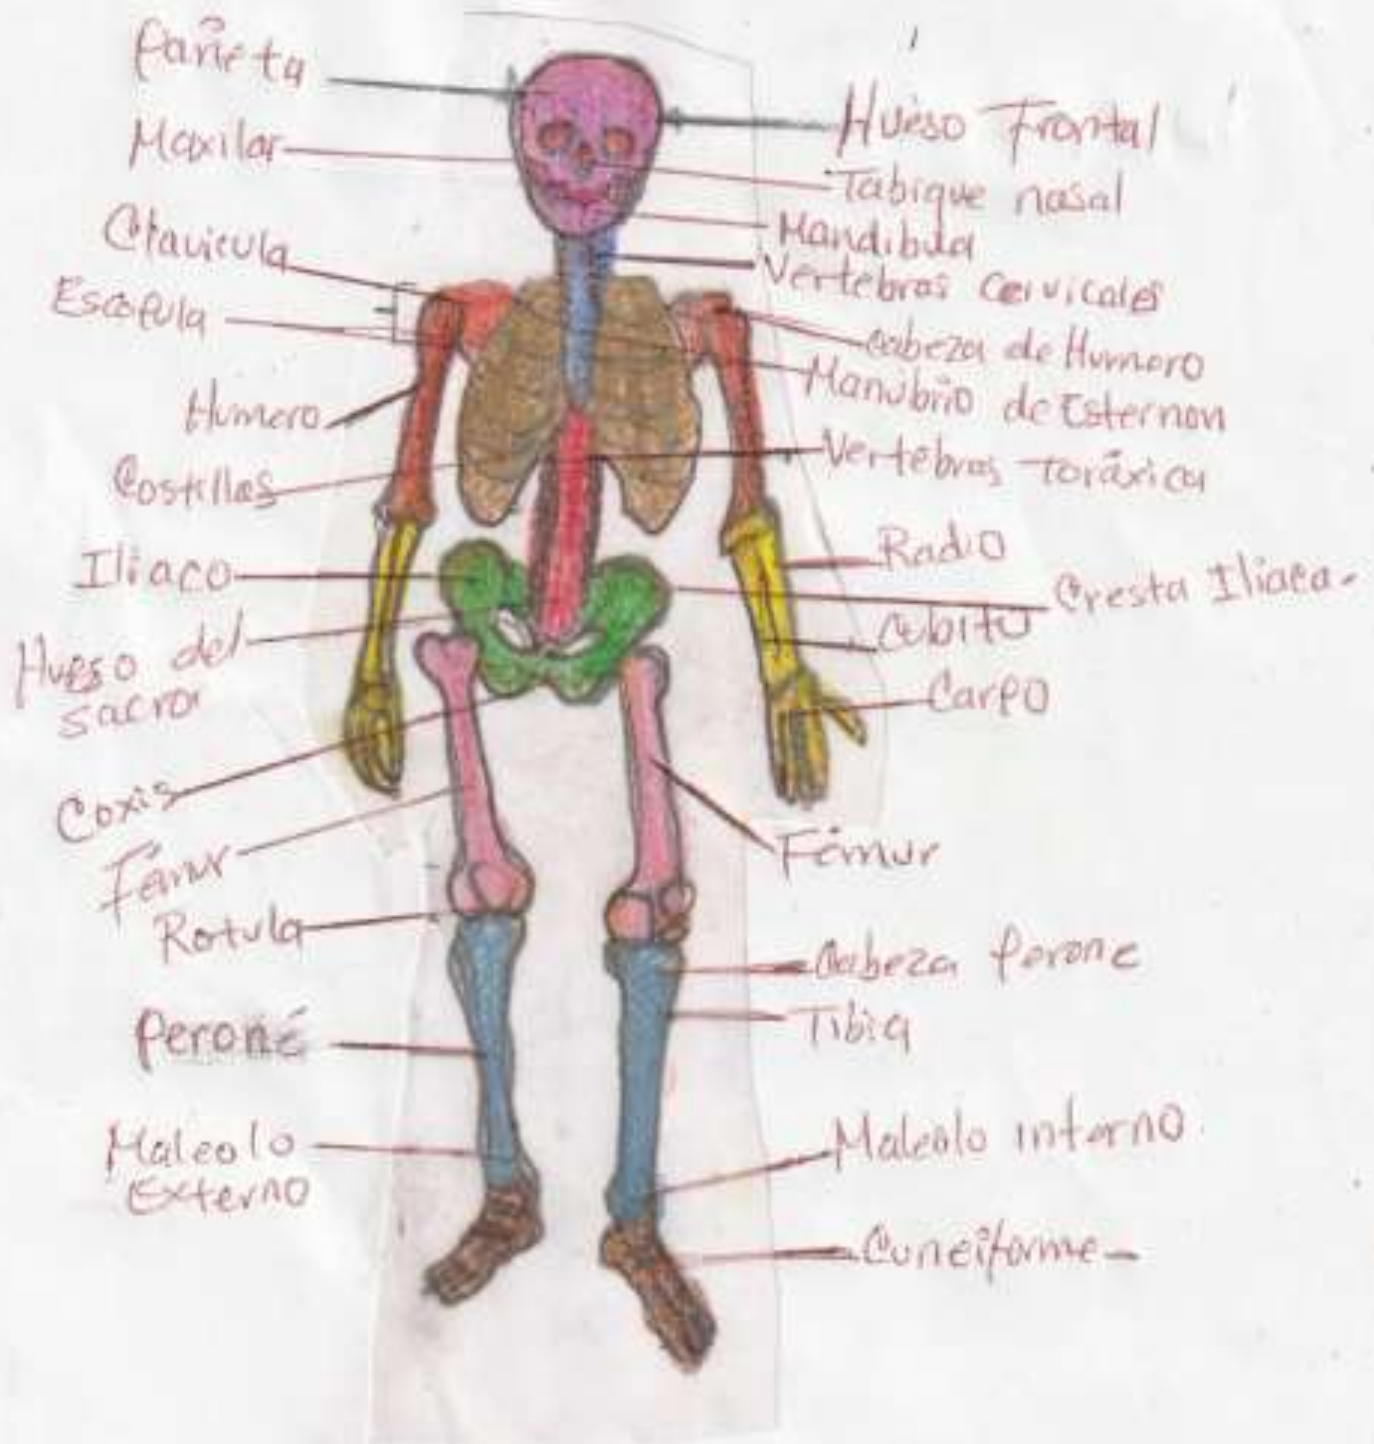 Pañeta
Maxilar
Clavicula
Escapula
Humero
Costillas
Iliaco
Hueso del
sacro
Coxis
Fémur
Rotula
Peroné
Maleolo
Externo
Hueso Frontal
Tabique nasal
Mandibula
Vertebras Cervicales
Cabeza de Humero
Manubrio de Esternon
Vertebras toráxica
Radio
Cresta Iliaca.
Cubito
Carpo
Fémur
Cabeza perone
Tibia
Maleolo interno.
Cuneiforme